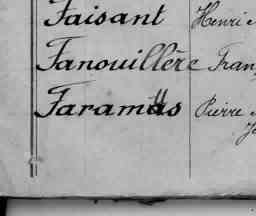 Faisant Henri
Fanouillère Fran
Faramus Pierre